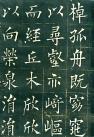 棹孤舟既窈窕
以尋壑亦崎嶇
而經丘木欣欣
以向榮泉涓涓